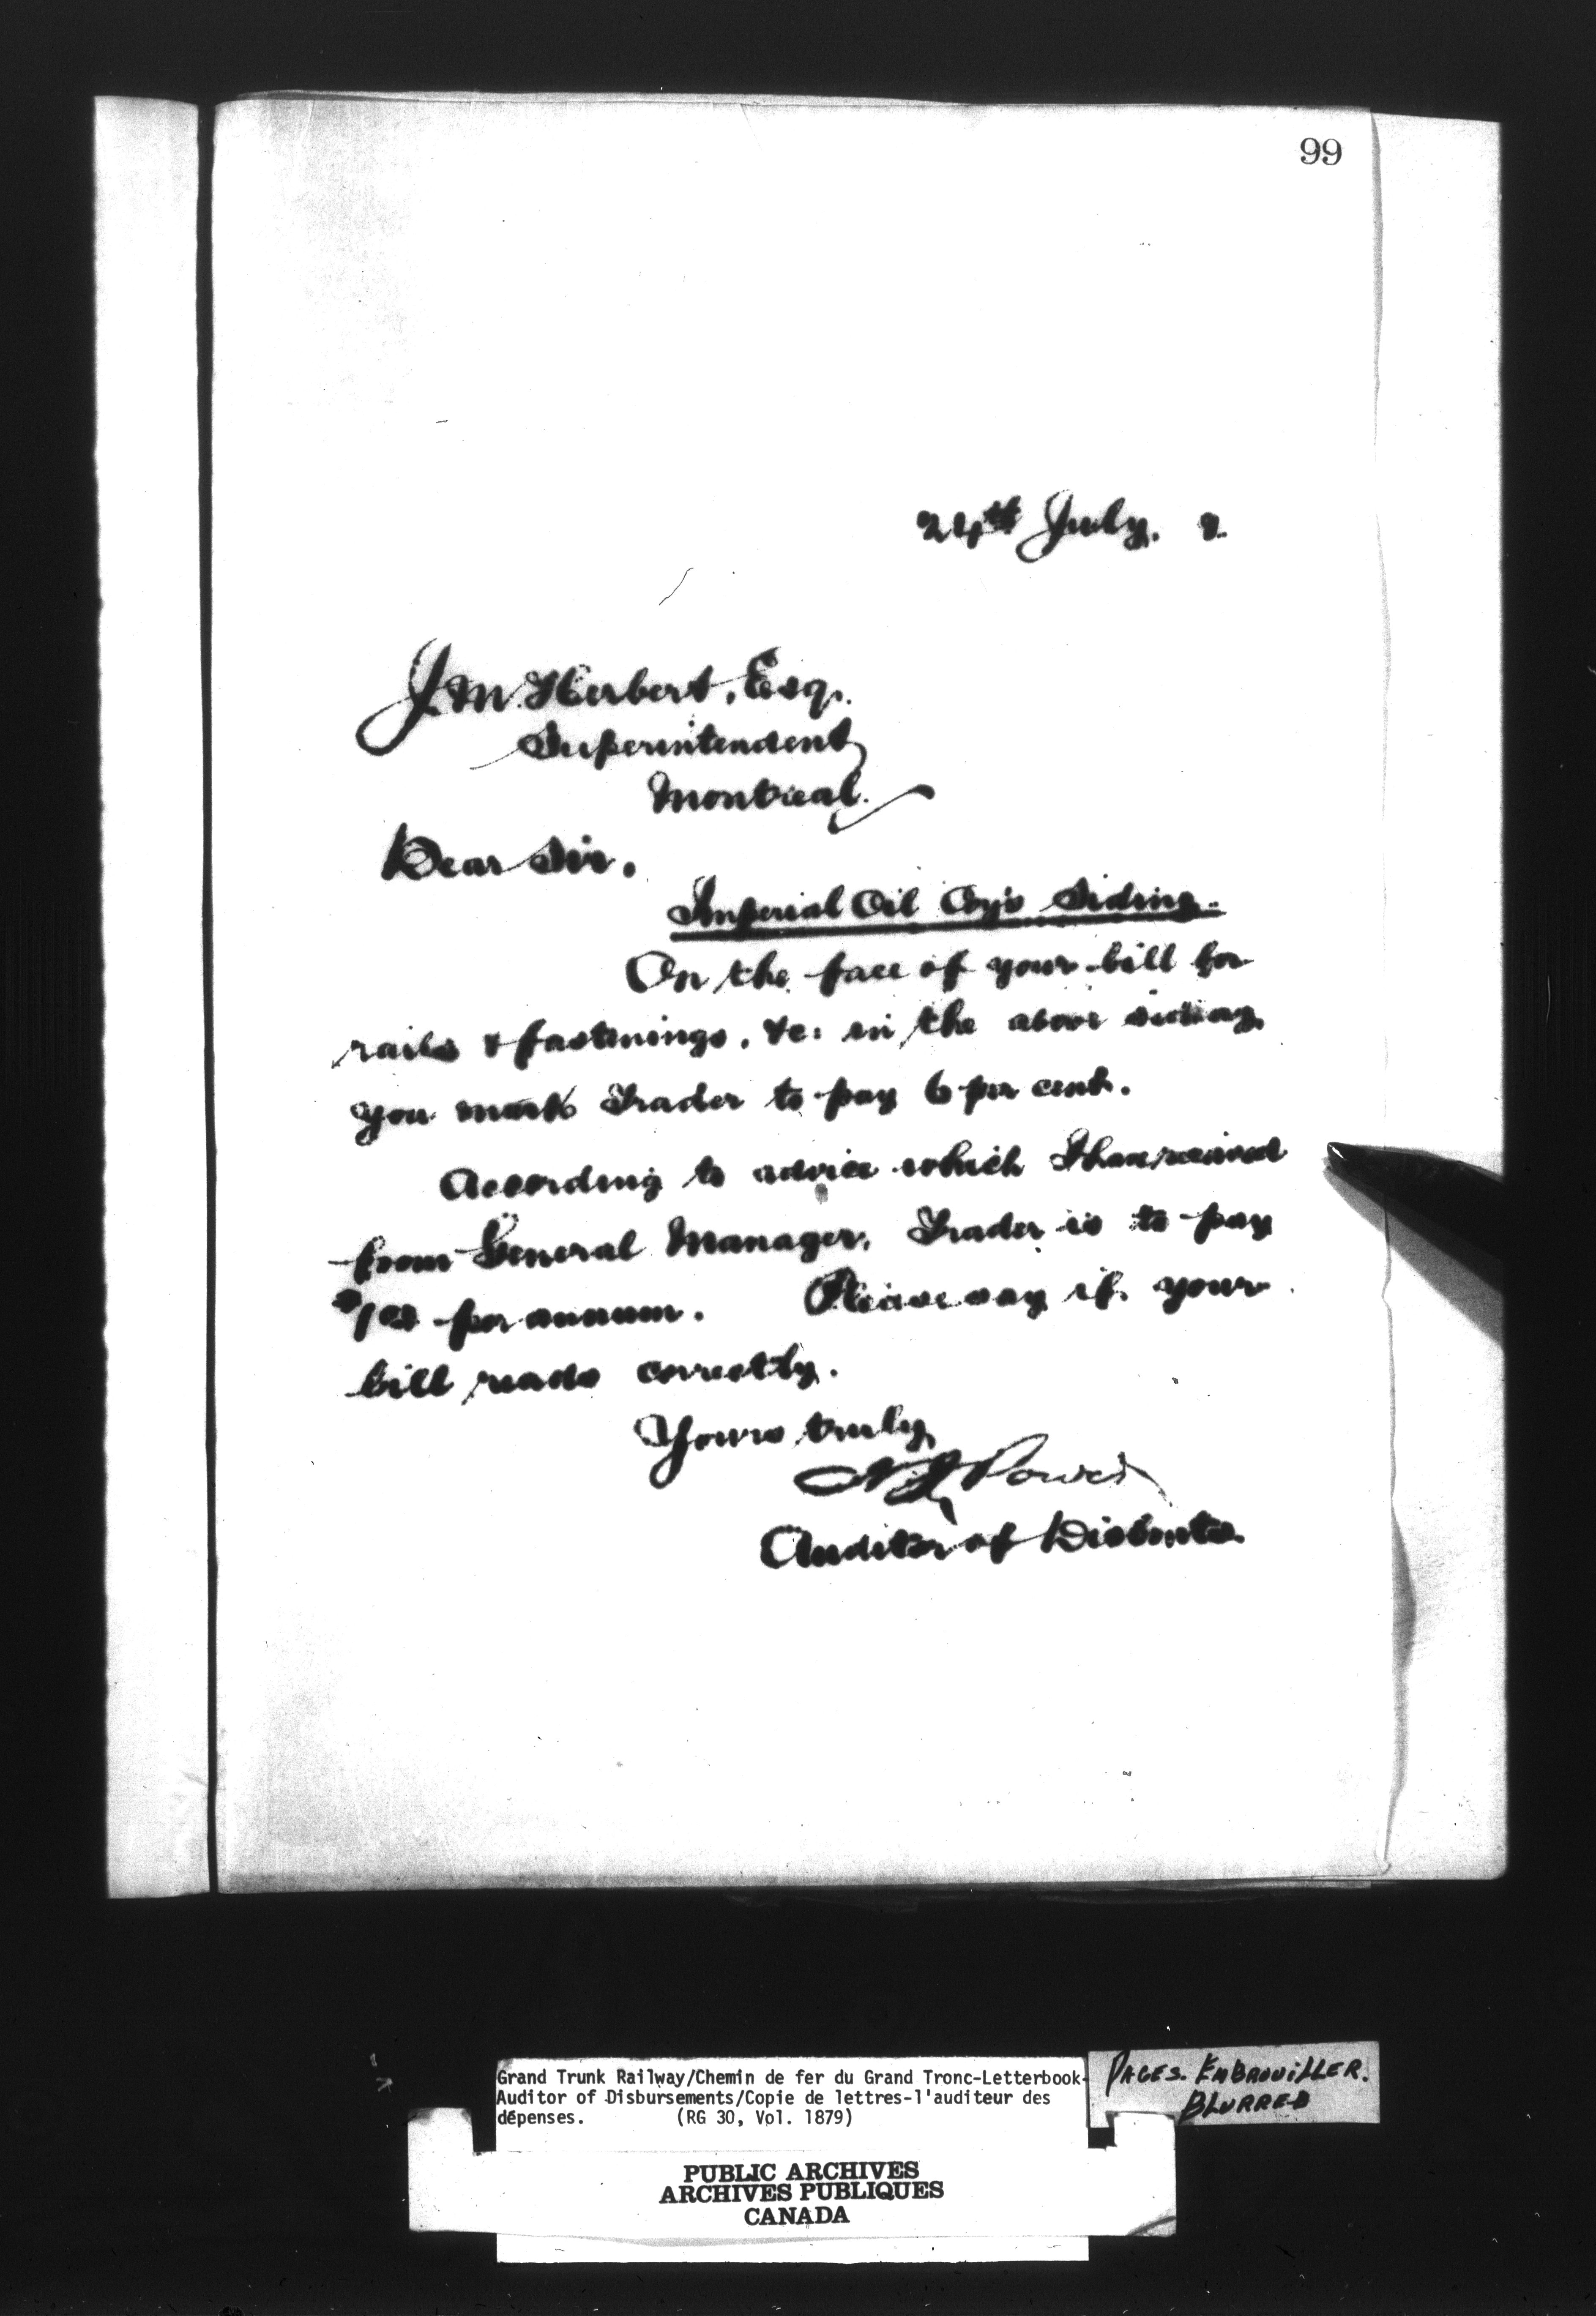 99
24th July. 2.
J. M. Herbert, Esq.
Superintendent
Montreal.
Dear Sir.
Imperial Oil Coy's Siding.
On the face of your bill for
rails & fastenings, &c: in the above siding
you mark Trader to pay 6 per cent.
According to advice which I have received
from General Manager, Trader is to pay
per annum. Please say if your
bill reads correctly.
Yours truly
Power
Auditor of Disbmts.
Grand Trunk Railway/Chemin de fer du Grand Tronc-Letterbook-
Auditor of Disbursements/Copie de lettres-l'auditeur des
dépenses. (RG 30, Vol. 1879)
PAGES. EMBROUILLER.
BLURRED
PUBLIC ARCHIVES
ARCHIVES PUBLIQUES
CANADA